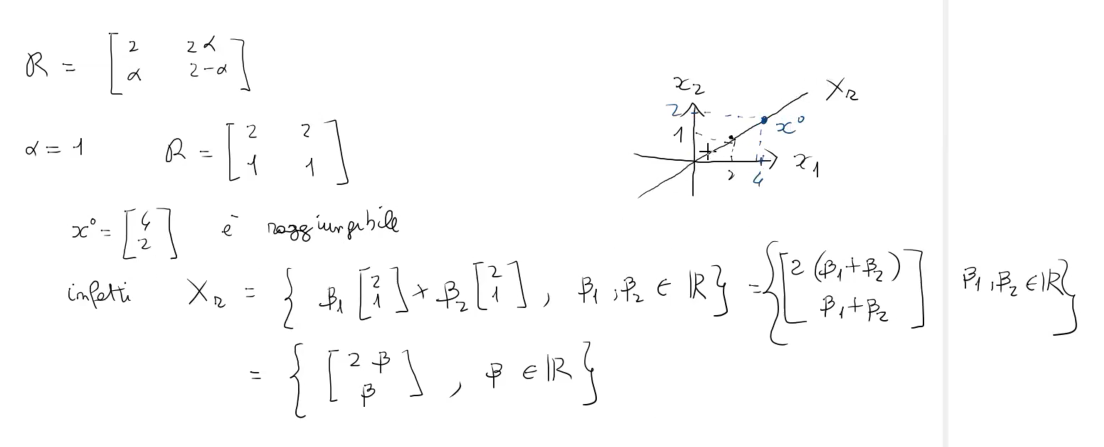 R = [ 2 2α ; α 2-α ]
α = 1 R = [ 2 2 ; 1 1 ]
x° = [ 4 ; 2 ] è raggiungibile
infatti X_R = { β₁ [ 2 ; 1 ] + β₂ [ 2 ; 1 ] , β₁, β₂ ∈ ℝ } = { [ 2 (β₁+β₂) ; β₁+β₂ ] β₁, β₂ ∈ ℝ }
= { [ 2 β ; β ] , β ∈ ℝ }
x₂
X_R
2
x°
1
x₁
2
4